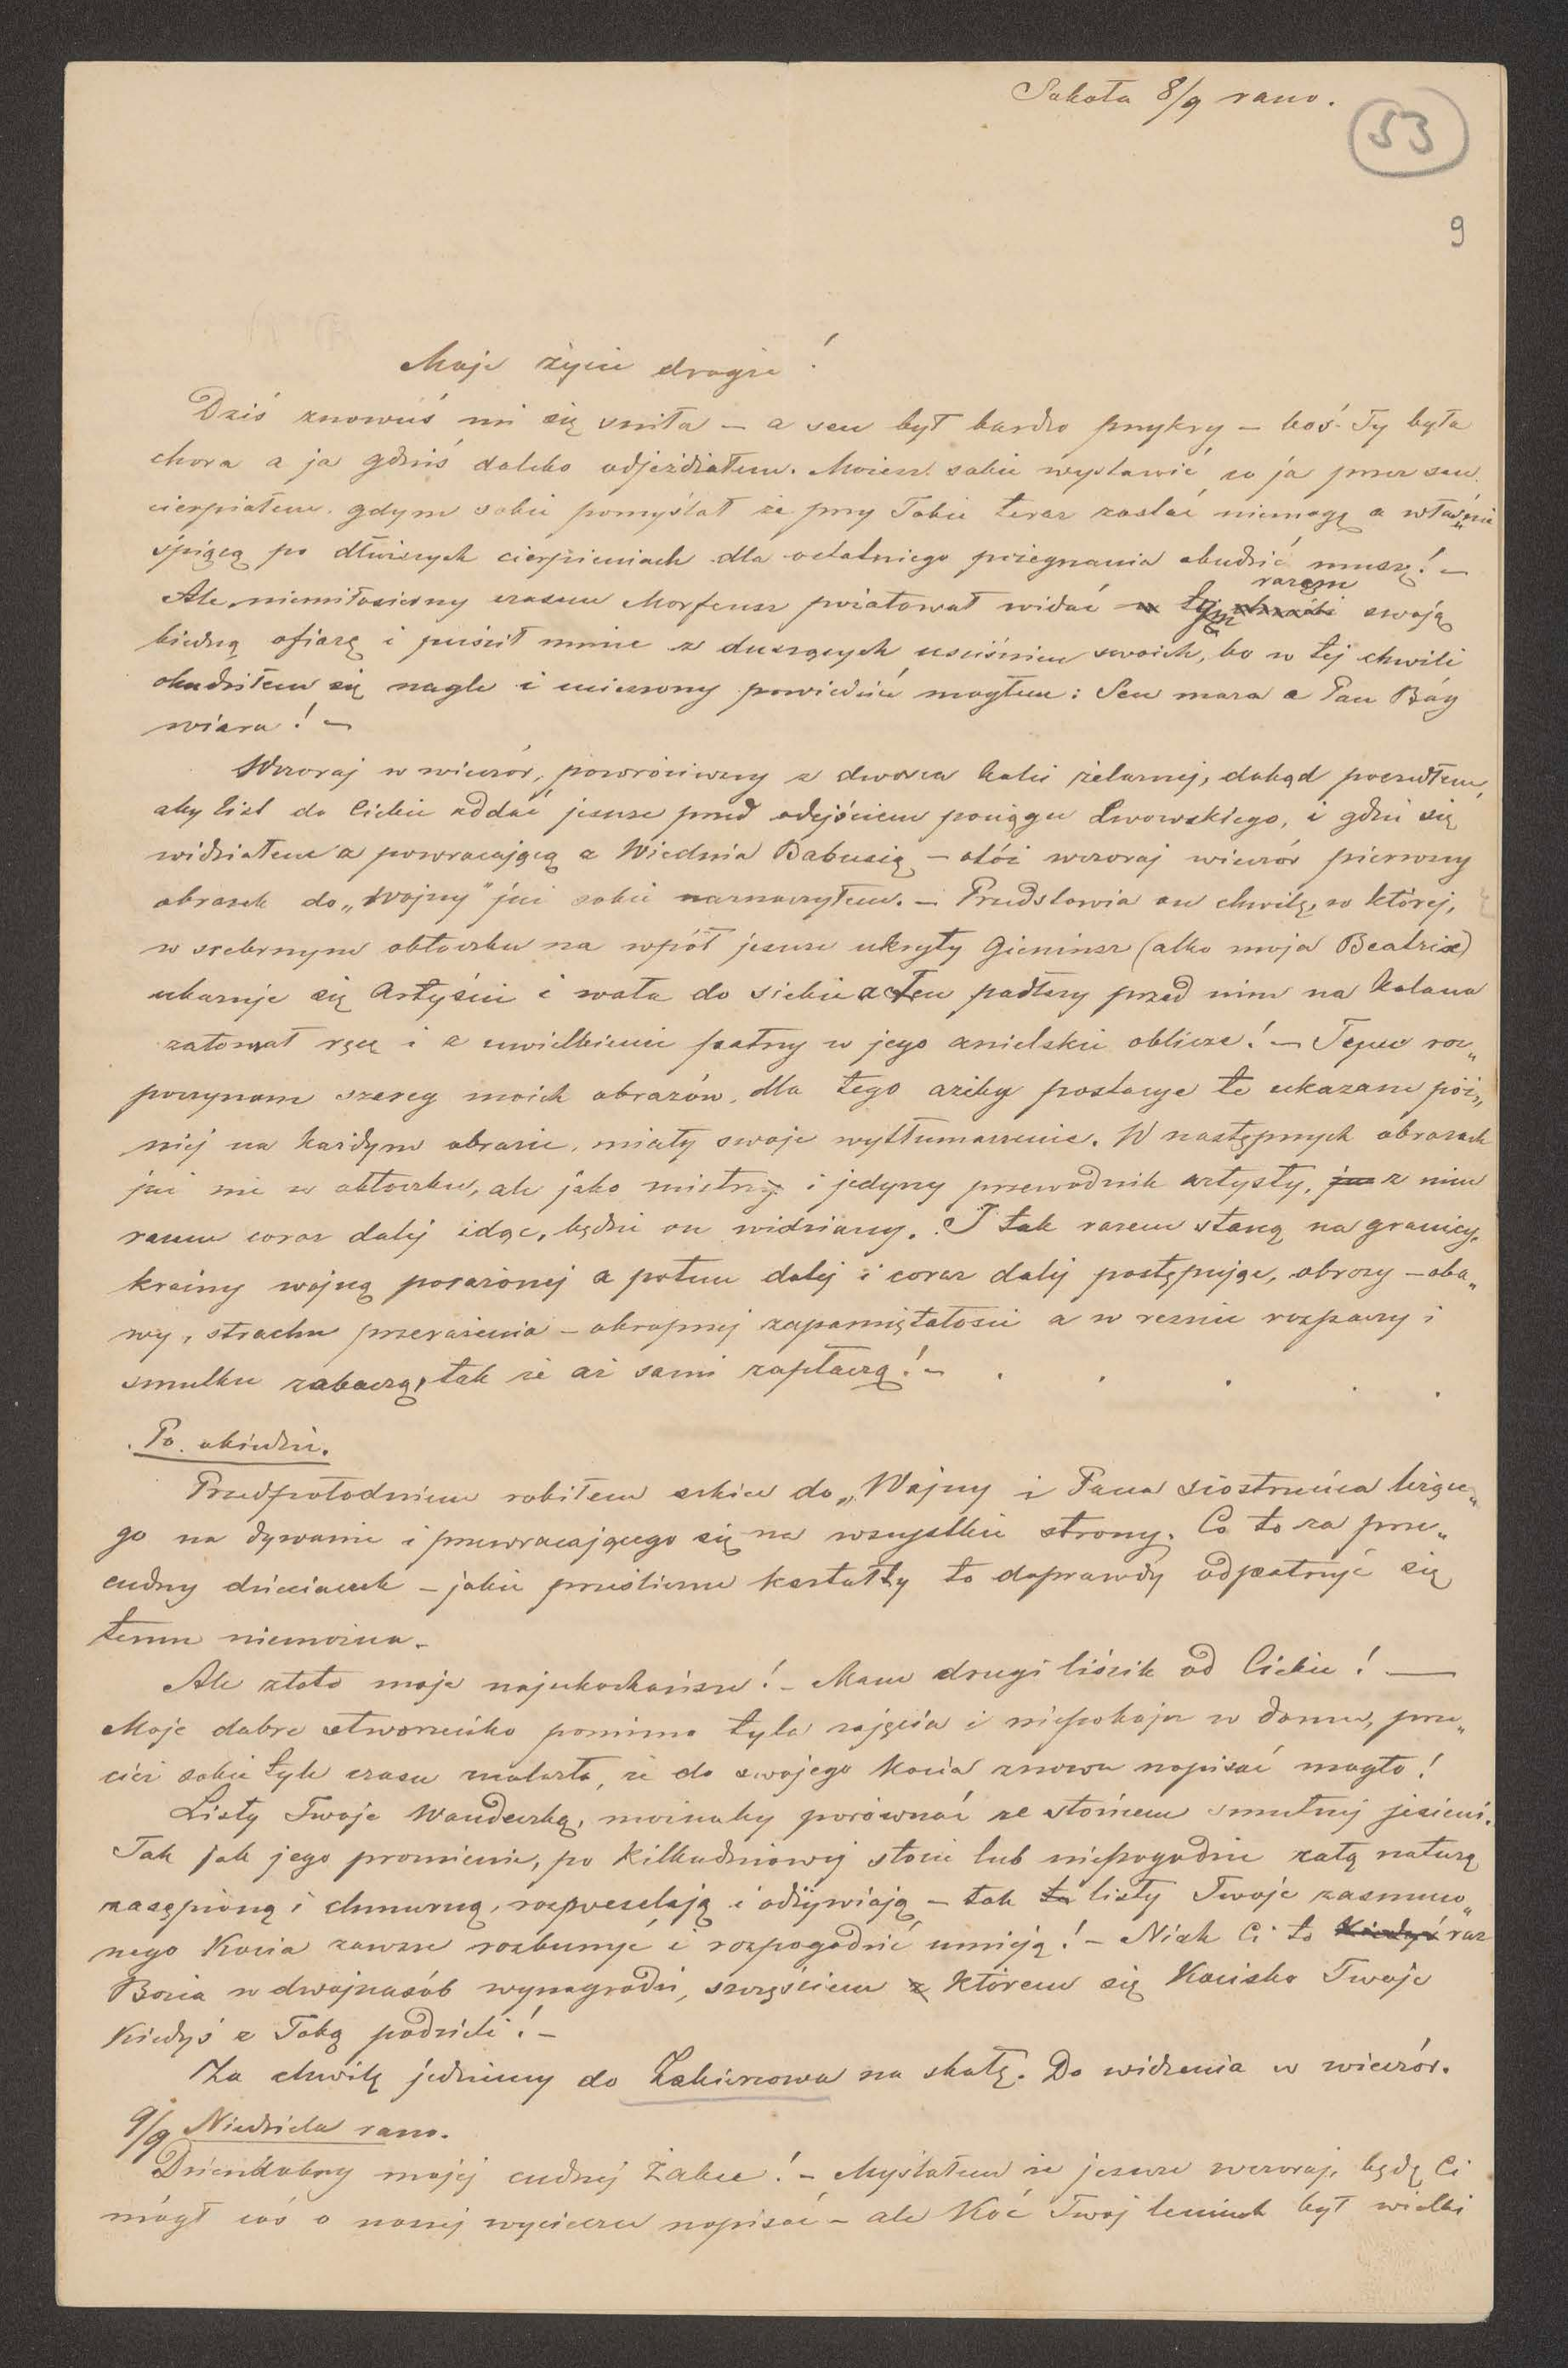 Sobota 8/9 rano.
53
9
Moje życie drogie!
Dziś znowuś mi się śniła – a sen był bardzo przykry – boś Ty była
chora a ja gdzieś daleko odjeżdżałem. Możesz sobie wystawić co ja przez sen
cierpiałem gdym sobie pomyślał że przy Tobie teraz zostać niemogę a właśnie
śpiącą po dłuższych cierpieniach dla ostatniego pożegnania obudzić muszę! –
Ale niemiłosierny czasem Morfeusz pożałował widać tym razem swoją
biedną ofiarę i puścił mnie z duszących uściśnień swoich, bo w tej chwili
obudziłem się nagle i ucieszony powiedzieć mogłem: Sen mara a Pan Bóg
wiara! –
Wczoraj w wieczór, powróciwszy z dworca kolei żelaznej, dokąd poszedłem,
aby list do Ciebie oddać jeszcze przed odejściem pociągu Lwowskiego, i gdzie się
widziałem z powracającą z Wiednia Babusią – otóż wczoraj wieczór pierwszy
obrazek do „Wojny" już sobie naznaczyłem. – Przedstawia on chwilę, w której,
w srebrnym obłoczku na wpół jeszcze ukryty Gieniusz (albo moja Beatrixe)
ukazuje się Artyście i woła do siebie a ten padłszy przed nim na kolana
załamał ręce i z uwielbieniem patrzy w jego anielskie oblicze! – Tem roz„
poczynam szereg moich obrazów, dla tego ażeby postacye te ukazane póź„
niej na każdym obrazie, miały swoje wytłumaczenie. W następnych obrazach
już nie w obłoczku, ale jako mistrz i jedyny przewodnik artysty, z nim
razem coraz dalej idąc, będzie on widziany. I tak razem staną na granicy
krainy wojną porażonej a potem dalej i coraz dalej postępując, obrazy – oba„
wy, strachu przerażenia – okropnej zapamiętałości a w reszcie rozpaczy i
smutku zobaczą, tak że aż sami zapłaczą! – . . . . .
Po obiedzie.
Przedpołudniem robiłem szkice do „Wojny i Pana siostrzeńca leżące„
go na dywanie i przewracającego się na wszystkie strony. Co to za prze„
cudny dzieciaczek – jakie prześliczne kształty to doprawdy odpatrzyć się
temu niemożna –
Ale złoto moje najukochańsze! – Mam drugi liścik od Ciebie! —
Moje dobre stworzeńko pomimo tyla zajęcia i niepokoju w domu, prze„
cież sobie tyle czasu znalazło, że do swojego Kocia znowu napisać mogło!
Listy Twoje Wandeczko, możnaby porównać ze słońcem smutnej jesieni.
Tak jak jego promienie, po kilkudniowej słocie lub niepogodzie całą naturę
zasępioną i chmurną, rozweselają i ożywiają – tak listy Twoje zasmuco„
nego Kocia zawsze rozbudzić i rozpogodzić umieją! – Niech Ci to raz
Bozia w dwójnasób wynagrodzi, szczęściem którem się Kocisko Twoje
kiedyś z Tobą podzieli! –
Za chwilę jedziemy do Zabierzowa na skałę. Do widzenia w wieczór.
9/9 Niedziela rano.
Dzieńdobry mojej cudnej Żabce! – Myślałem że jeszcze wczoraj, będę Ci
mógł coś o naszej wycieczce napisać – ale Koć Twój leniuch był wielki